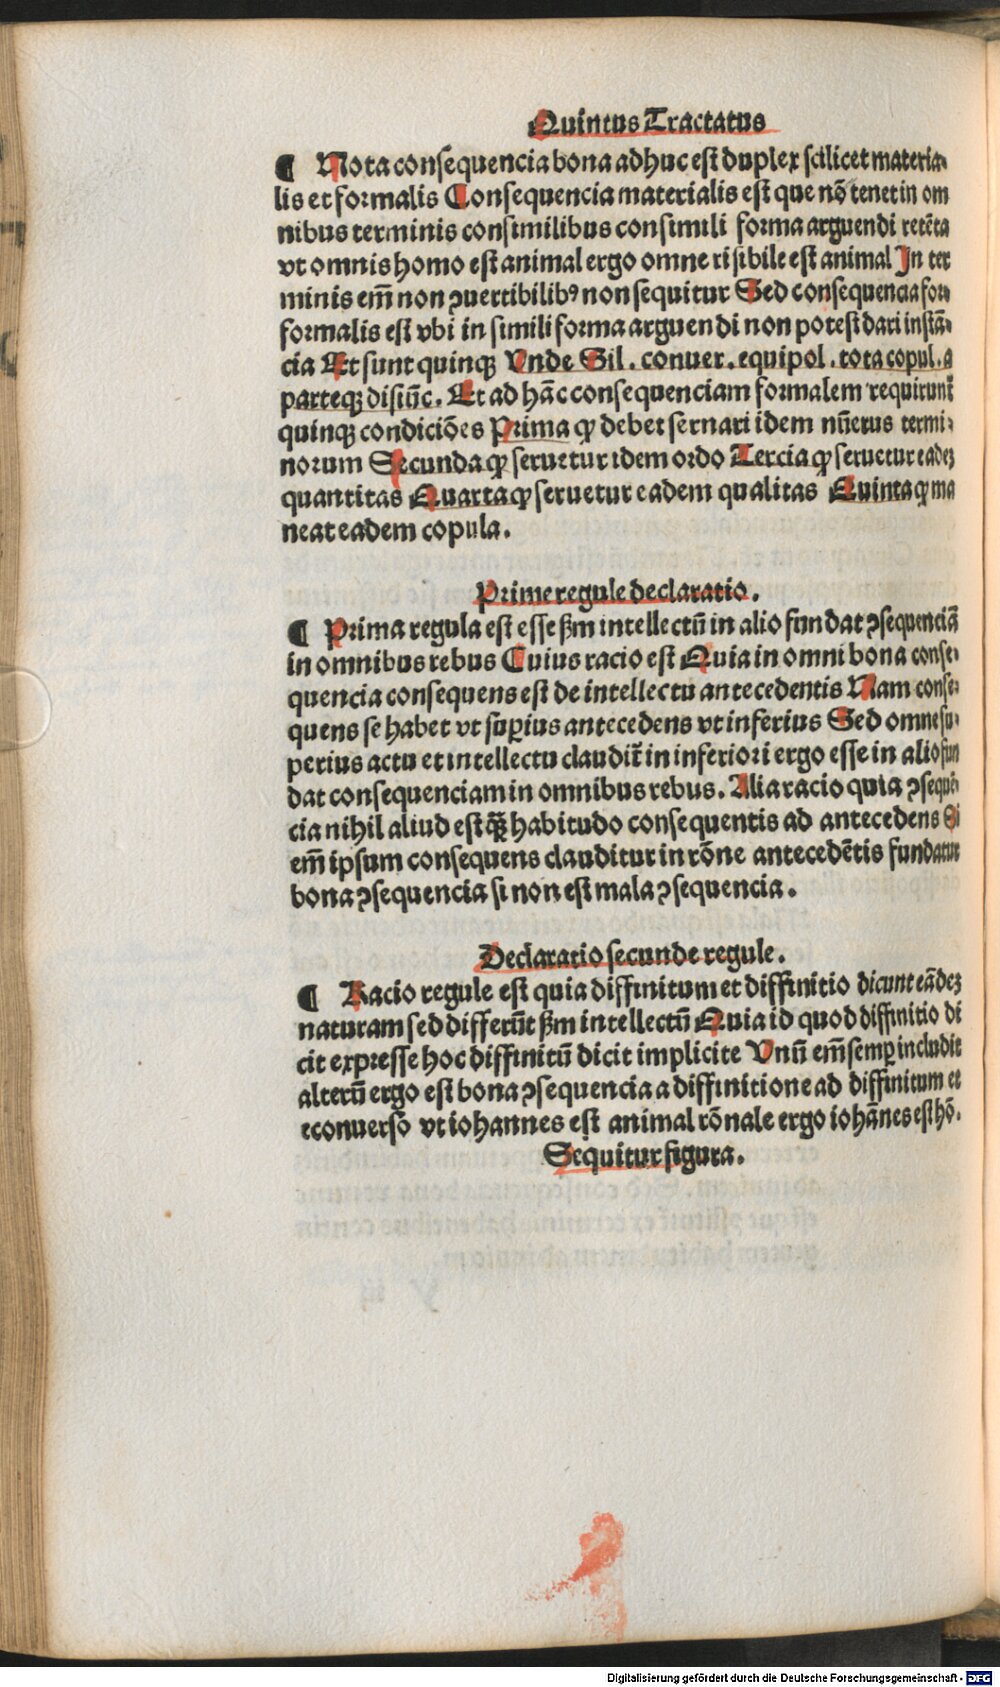 Quintus Tractatus
¶ Nota consequencia bona adhuc est duplex scilicet materia-
lis et formalis Consequencia materialis est que nō tenet in om
nibus terminis consimilibus consimili forma arguendi retēta
vt omnis homo est animal ergo omne risibile est animal In ter
minis em̄ non ꝯuertibilibꝰ non sequitur Sed consequencia for-
formalis est vbi in simili forma arguendi non potest dari instā-
cia Et sunt quinqꝫ Vnde Sil. conuer. equipol. tota copul. a
parteqꝫ disiūc. Et ad hāc consequenciam formalem requirunt̄
quinqꝫ condiciōes Prima ꝙ debet sernari idem nūerus termi-
norum Secunda ꝙ seruetur idem ordo Tercia ꝙ seruetur eadeꝫ
quantitas Quarta ꝙ seruetur eadem qualitas Quinta ꝙ ma
neat eadem copula.
Prime regule declaratio.
¶ Prima regula est esse ẞm intellectū in alio fundat ꝯsequenciā
in omnibus rebus Cuius racio est Quia in omni bona conse-
quencia consequens est de intellectu antecedentis Nam conse-
quens se habet vt suꝑius antecedens vt inferius Sed omne su-
perius actu et intellectu claudit̄ in inferiori ergo esse in alio fun
dat consequenciam in omnibus rebus. Alia racio quia ꝯsequē-
cia nihil aliud est q̄ꝫ habitudo consequentis ad antecedens Si
em̄ ipsum consequens clauditur in rōne antecedētis fundatur
bona ꝯsequencia si non est mala ꝯsequencia.
Declaratio secunde regule.
¶ Racio regule est quia diffinitum et diffinitio dicunt eādeꝫ
naturam sed differūt ẞm intellectū Quia id quod diffinitio di
cit expresse hoc diffinitū dicit implicite Vnū em̄ semꝑ includit
alterū ergo est bona ꝯsequencia a diffinitione ad diffinitum et
econuerso vt iohannes est animal rōnale ergo iohānes est hō.
Sequitur figura.
Digitalisierung gefördert durch die Deutsche Forschungsgemeinschaft - DFG